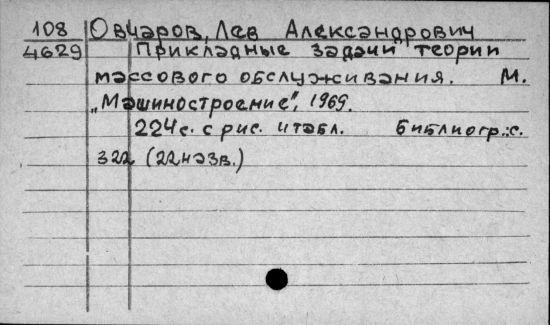 108 Овчаров, Лев Александрович
4629 Прикладные задачи теории
массового обслуживания. М.
„Машиностроение", 1969.
224с. с рис. и табл. Библиогр.: с.
322 (22 назв.)